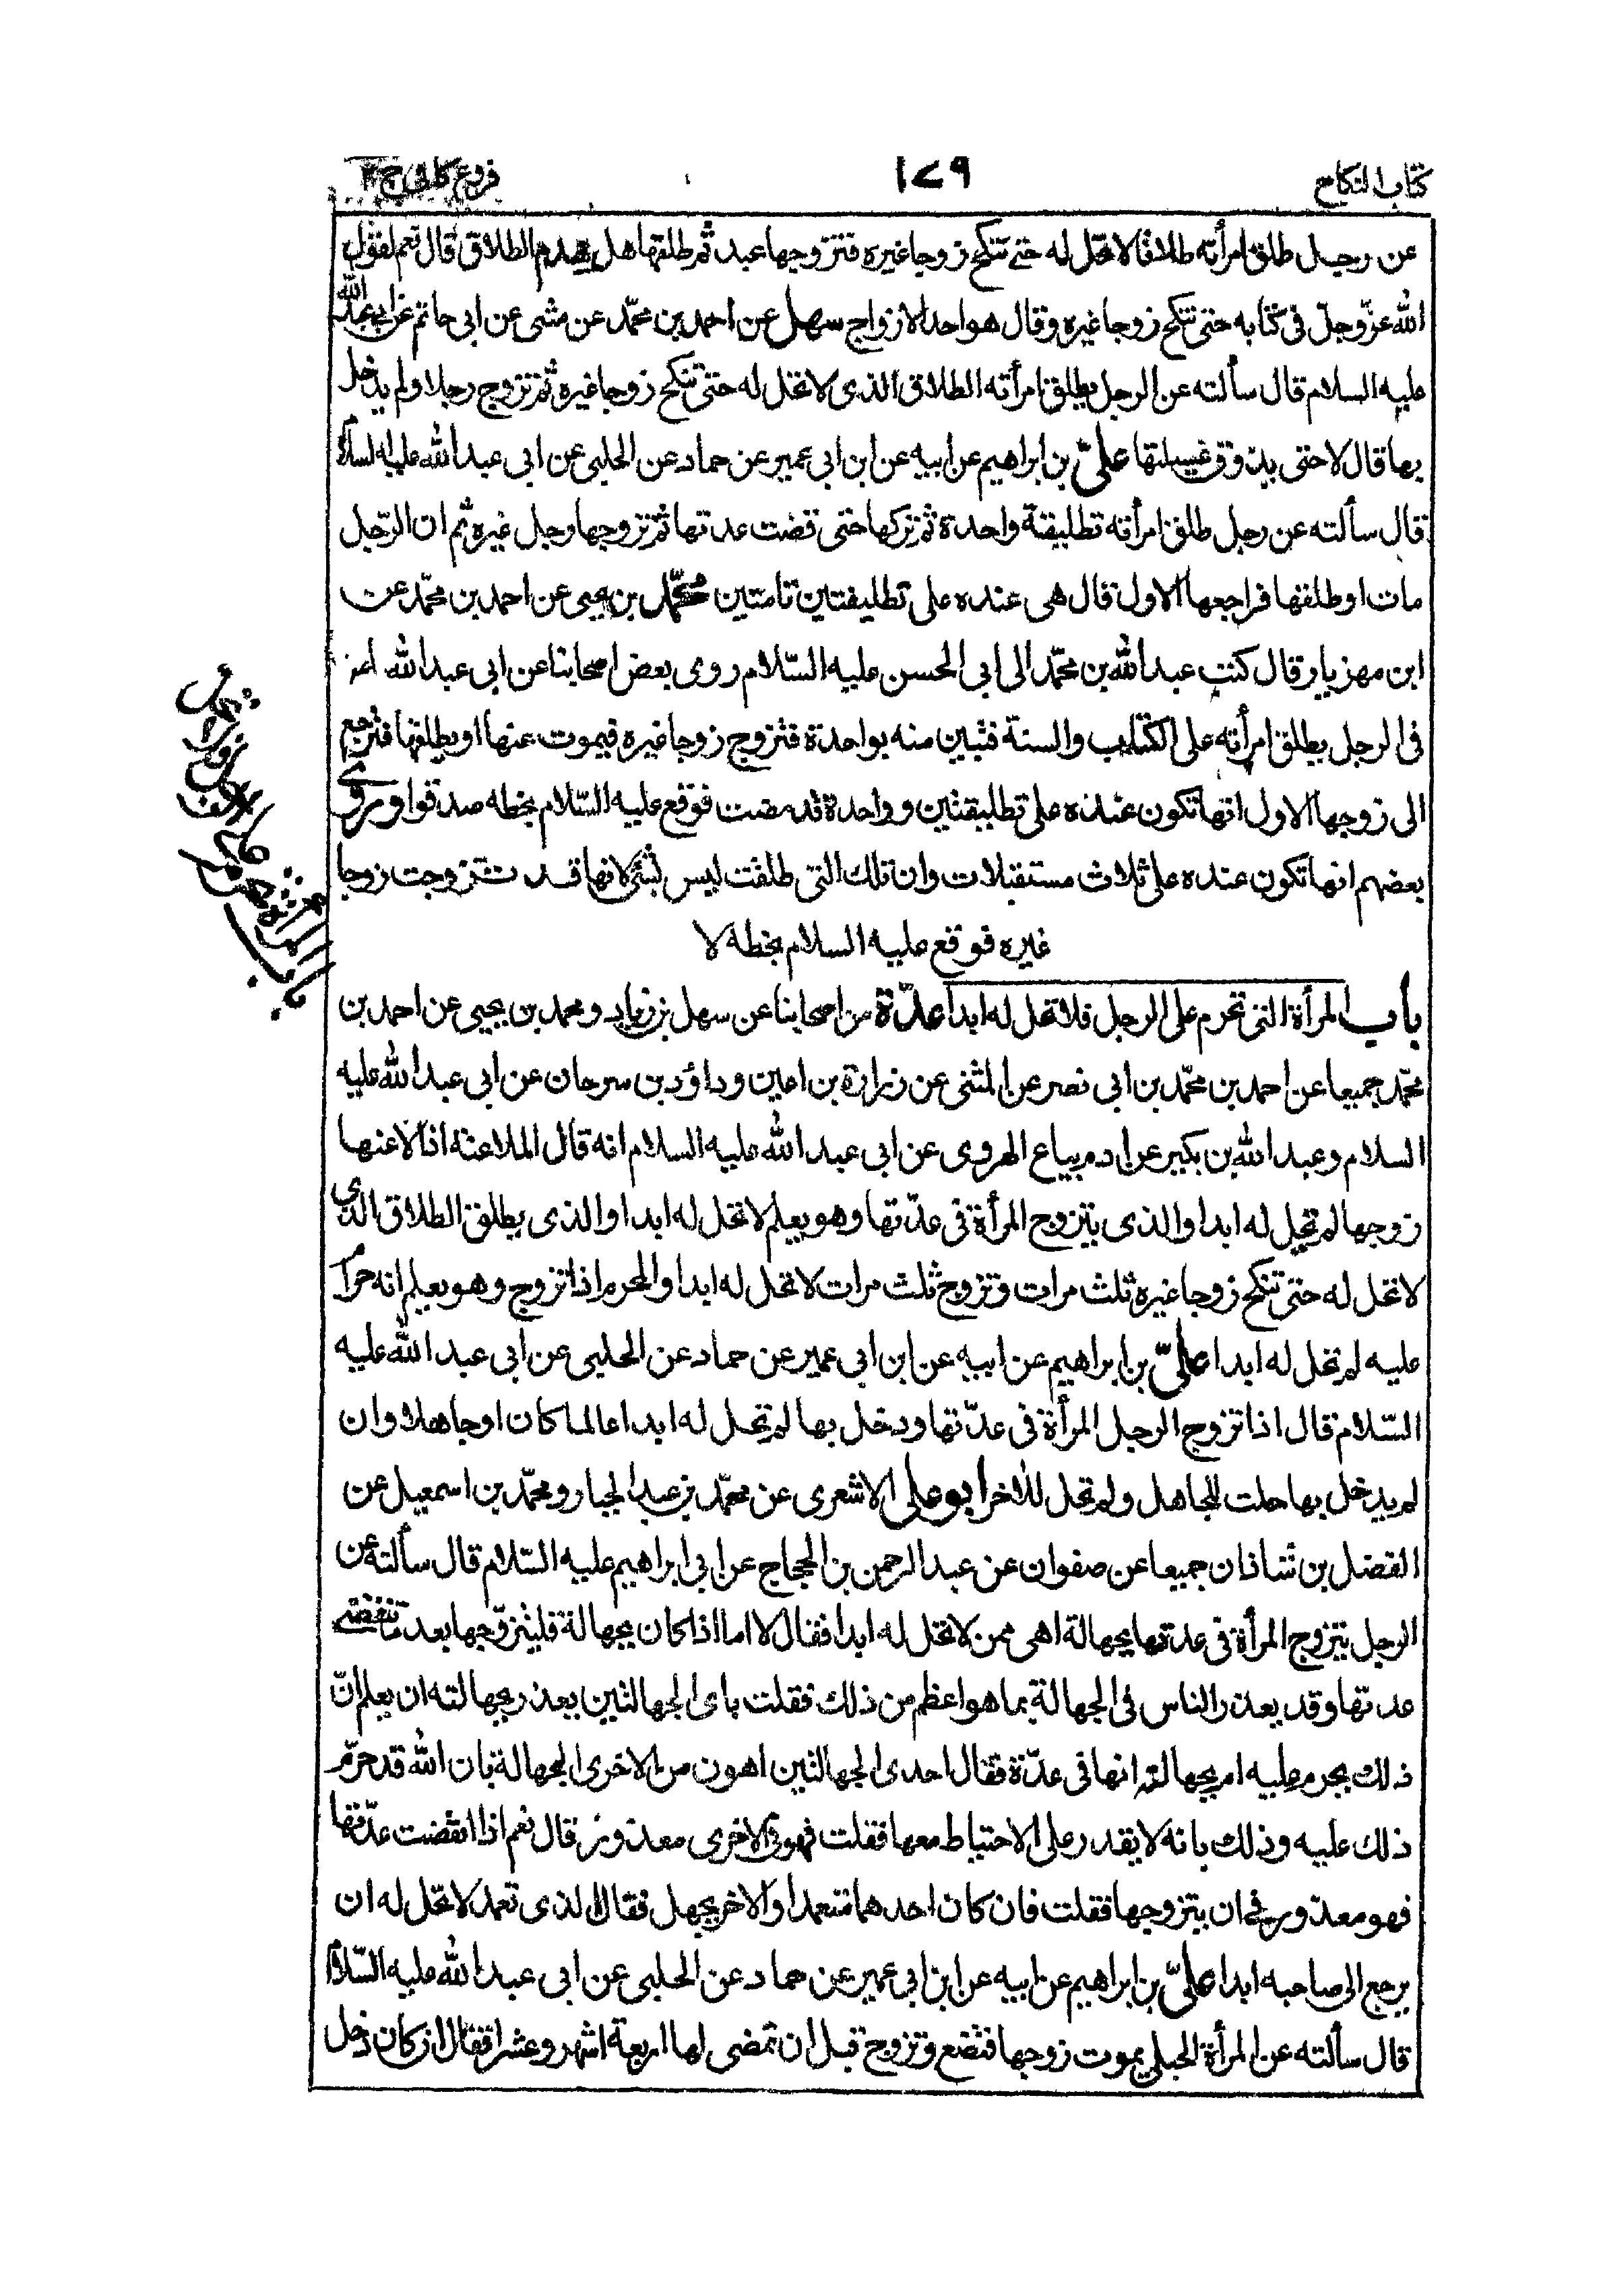 كتاب النكاح
١٧٩
فروع كافى ج ٢
عن رجل طلق امرأته طلاقا لا تحل له حتى تنكح زوجا غيره فتزوجها عبد ثم طلقها هل يهدم الطلاق قال نعم لقول
الله عزّ وجلّ فى كتابه حتى تنكح زوجا غيره وقال هو احد الازواج سهل عن احمد بن محمّد عن مثنى عن ابى حاتم عن ابى عبد الله
عليه السلام قال سألته عن الرجل يطلق امرأته الطلاق الذى لا تحل له حتى تنكح زوجا غيره ثم تزوج رجلا ولم يدخل
بها قال لا حتى يذوق عسيلتها علىّ بن ابراهيم عن ابيه عن ابن ابى عمير عن حماد عن الحلبى عن ابى عبد الله عليه السلام
قال سألته عن رجل طلق امرأته تطليقة واحدة ثم تركها حتى قضت عدتها ثم تزوجها رجل غيره ثم ان الرّجل
مات او طلقها فراجعها الاول قال هى عنده على تطليقتين تامتين محمّد بن يحيى عن احمد بن محمّد عن
ابن مهزيار قال كتب عبد الله بن محمّد الى ابى الحسن عليه السّلام روى بعض اصحابنا عن ابى عبد الله
فى الرجل يطلق امرأته على الكتاب والسنة فتبين منه بواحدة فتزوج زوجا غيره فيموت عنها او يطلقها فترجع
الى زوجها الاول انها تكون عنده على تطليقتين وواحدة قد مضت فوقع عليه السّلام بخطه صدقوا وروى
بعضهم انها تكون عنده على ثلاث مستقبلات وان تلك التى طلقت ليس بشئ لانها قد تزوجت زوجا
غيره فوقع عليه السلام بخطه لا
باب المرأة التى تحرم على الرجل فلا تحل له ابدا عدّة من اصحابنا عن سهل بن زياد ومحمد بن يحيى عن احمد بن
محمّد جميعا عن احمد بن محمّد بن ابى نصر عن المثنى عن زرارة بن اعين وداؤد بن سرحان عن ابى عبد الله عليه
السلام وعبد الله بن بكير عن اديم بياع الهروى عن ابى عبد الله عليه السلام انه قال الملاعنة اذا لاعنها
زوجها لم تحل له ابدا والذى يتزوج المرأة فى عدّتها وهو يعلم لا تحل له ابدا والذى يطلق الطلاق الذى
لا تحل له حتى تنكح زوجا غيره ثلث مرات وتزوج ثلث مرات لا تحل له ابدا والمحرم اذا تزوج وهو يعلم انه حرام
عليه لم تحل له ابدا علىّ بن ابراهيم عن ابيه عن ابن ابى عمير عن حماد عن الحلبى عن ابى عبد الله عليه
السّلام قال اذا تزوج الرجل المرأة فى عدّتها ودخل بها لم تحل له ابدا عالما كان او جاهلا وان
لم يدخل بها حلت للجاهل ولم تحل للاخر ابو على الاشعرى عن محمّد بن عبد الجبار ومحمّد بن اسمعيل عن
الفضل بن شاذان جميعا عن صفوان عن عبد الرحمن بن الحجاج عن ابى ابراهيم عليه السّلام قال سألته عن
الرجل يتزوج المرأة فى عدتها بجهالة اهى ممن لا تحل له ابدا فقال لا اما اذا كان بجهالة فليتزوّجها بعد ما تنقضى
عدتها وقد يعذر الناس فى الجهالة بما هو اعظم من ذلك فقلت باى الجهالتين يعذر بجهالته ان يعلم انّ
ذلك يحرم عليه ام بجهالته انها فى عدّة فقال احدى الجهالتين اهون من الاخرى الجهالة بان الله قد حرّم
ذلك عليه وذلك بانه لا يقدر على الاحتياط معها فقلت فهو فى الاخرى معذور قال نعم اذا انقضت عدّتها
فهو معذور فى ان يتزوجها فقلت فان كان احدهما متعمدا والاخر يجهل فقال الذى تعمد لا تحل له ان
يرجع الى صاحبه ابدا علىّ بن ابراهيم عن ابيه عن ابن ابى عمير عن حماد عن الحلبى عن ابى عبد الله عليه السّلام
قال سألته عن المرأة الحبلى يموت زوجها فتضع وتزوج قبل ان تمضى لها اربعة اشهر وعشرا فقال ان كان دخل